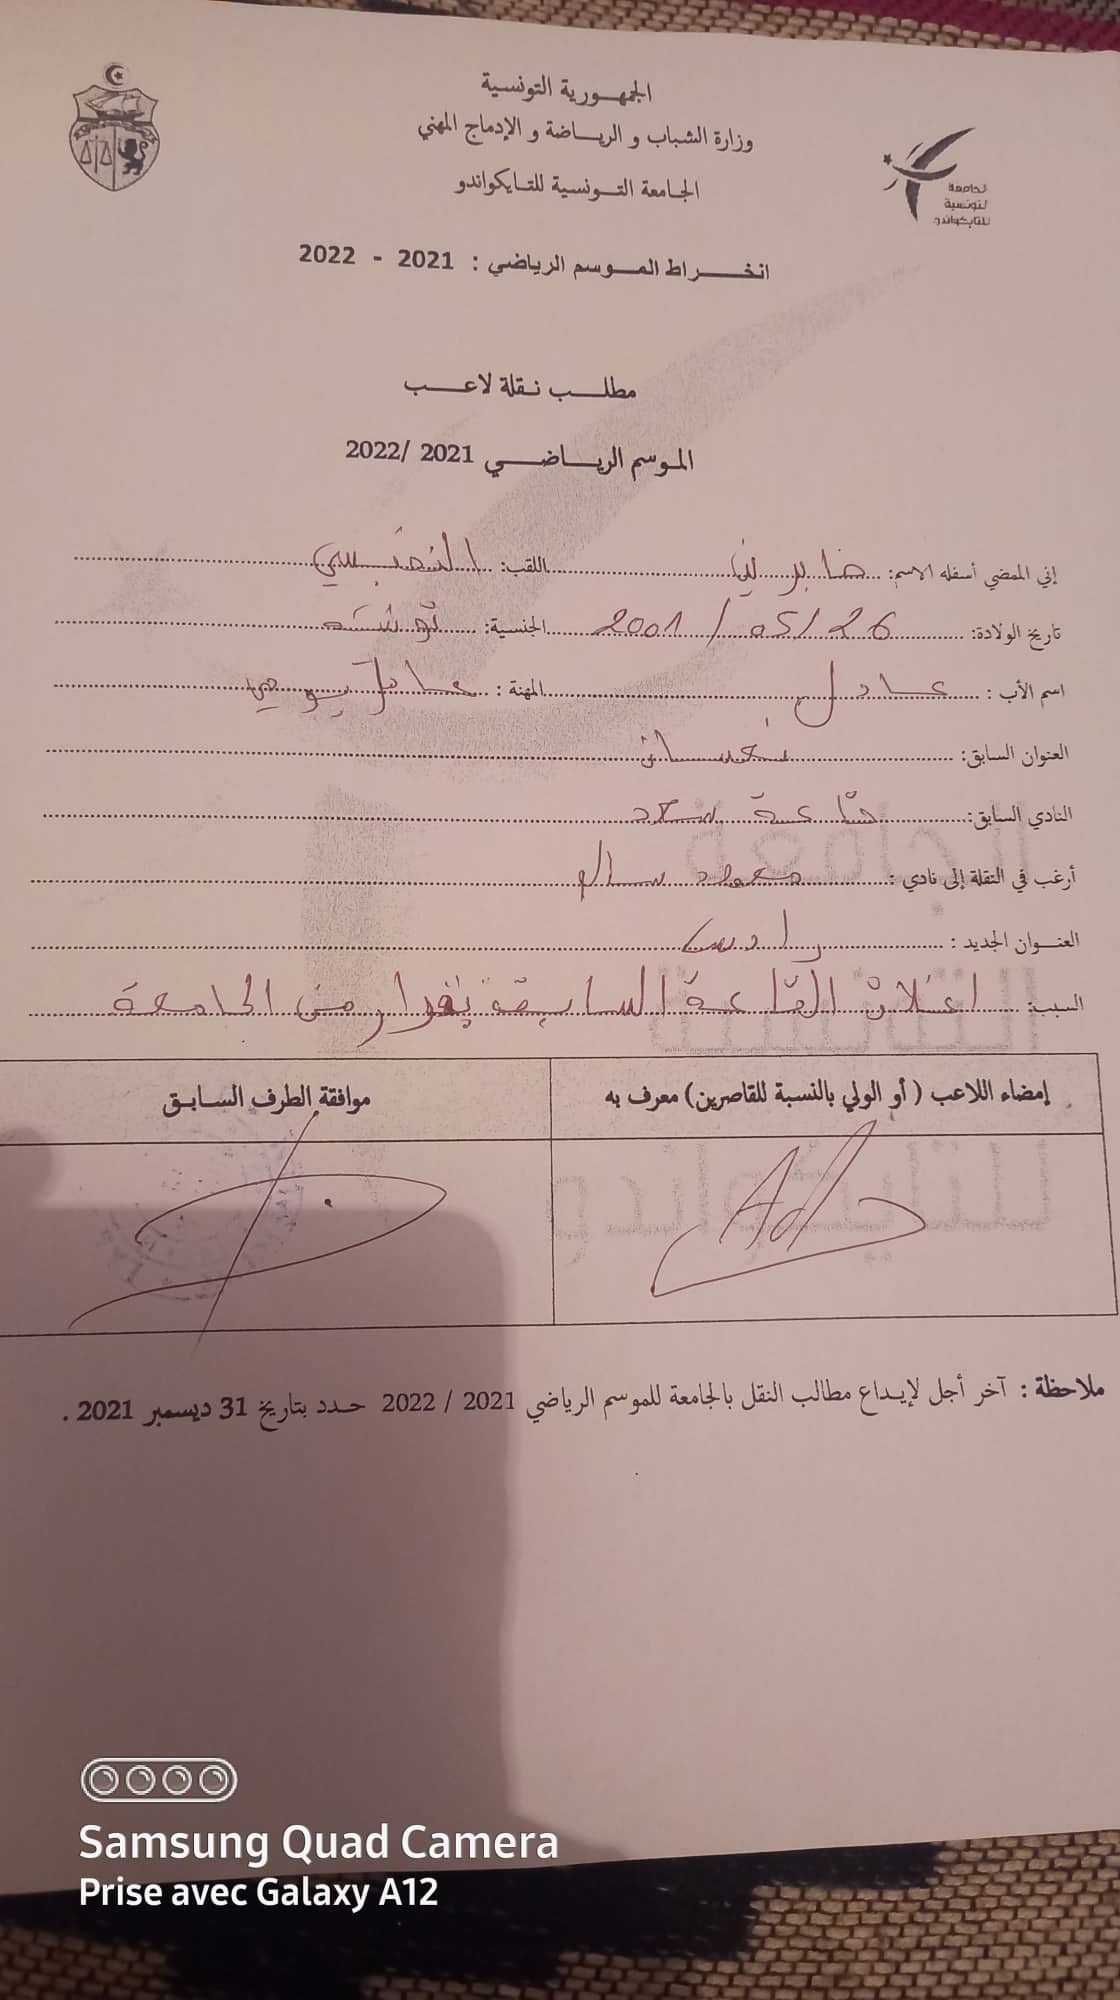 الجمهورية التونسية
وزارة الشباب و الرياضة و الإدماج المهني
الجامعة التونسية للتايكواندو
الجامعة
التونسية
للتايكواندو
انخراط الموسم الرياضي : 2021 - 2022
مطلب نقلة لاعب
الموسم الرياضي 2021 /2022
إني الممضي أسفله الاسم: اللقب:
تاريخ الولادة: 26 /05 / 2001 الجنسية:
اسم الأب : عادل المهنة : عامل يومي
العنوان السابق: نعسان
النادي السابق: قاعة سعد
أرغب في النقلة إلى نادي : سالم
العنوان الجديد : رادس
السبب: اغلاق القاعة السابقة بقرار من الجامعة
إمضاء اللاعب ( أو الولي بالنسبة للقاصرين) معرف به
موافقة الطرف السابق
Adl
ملاحظة : آخر أجل لإيداع مطالب النقل بالجامعة للموسم الرياضي 2021 / 2022 حدد بتاريخ 31 ديسمبر 2021 .
Samsung Quad Camera
Prise avec Galaxy A12